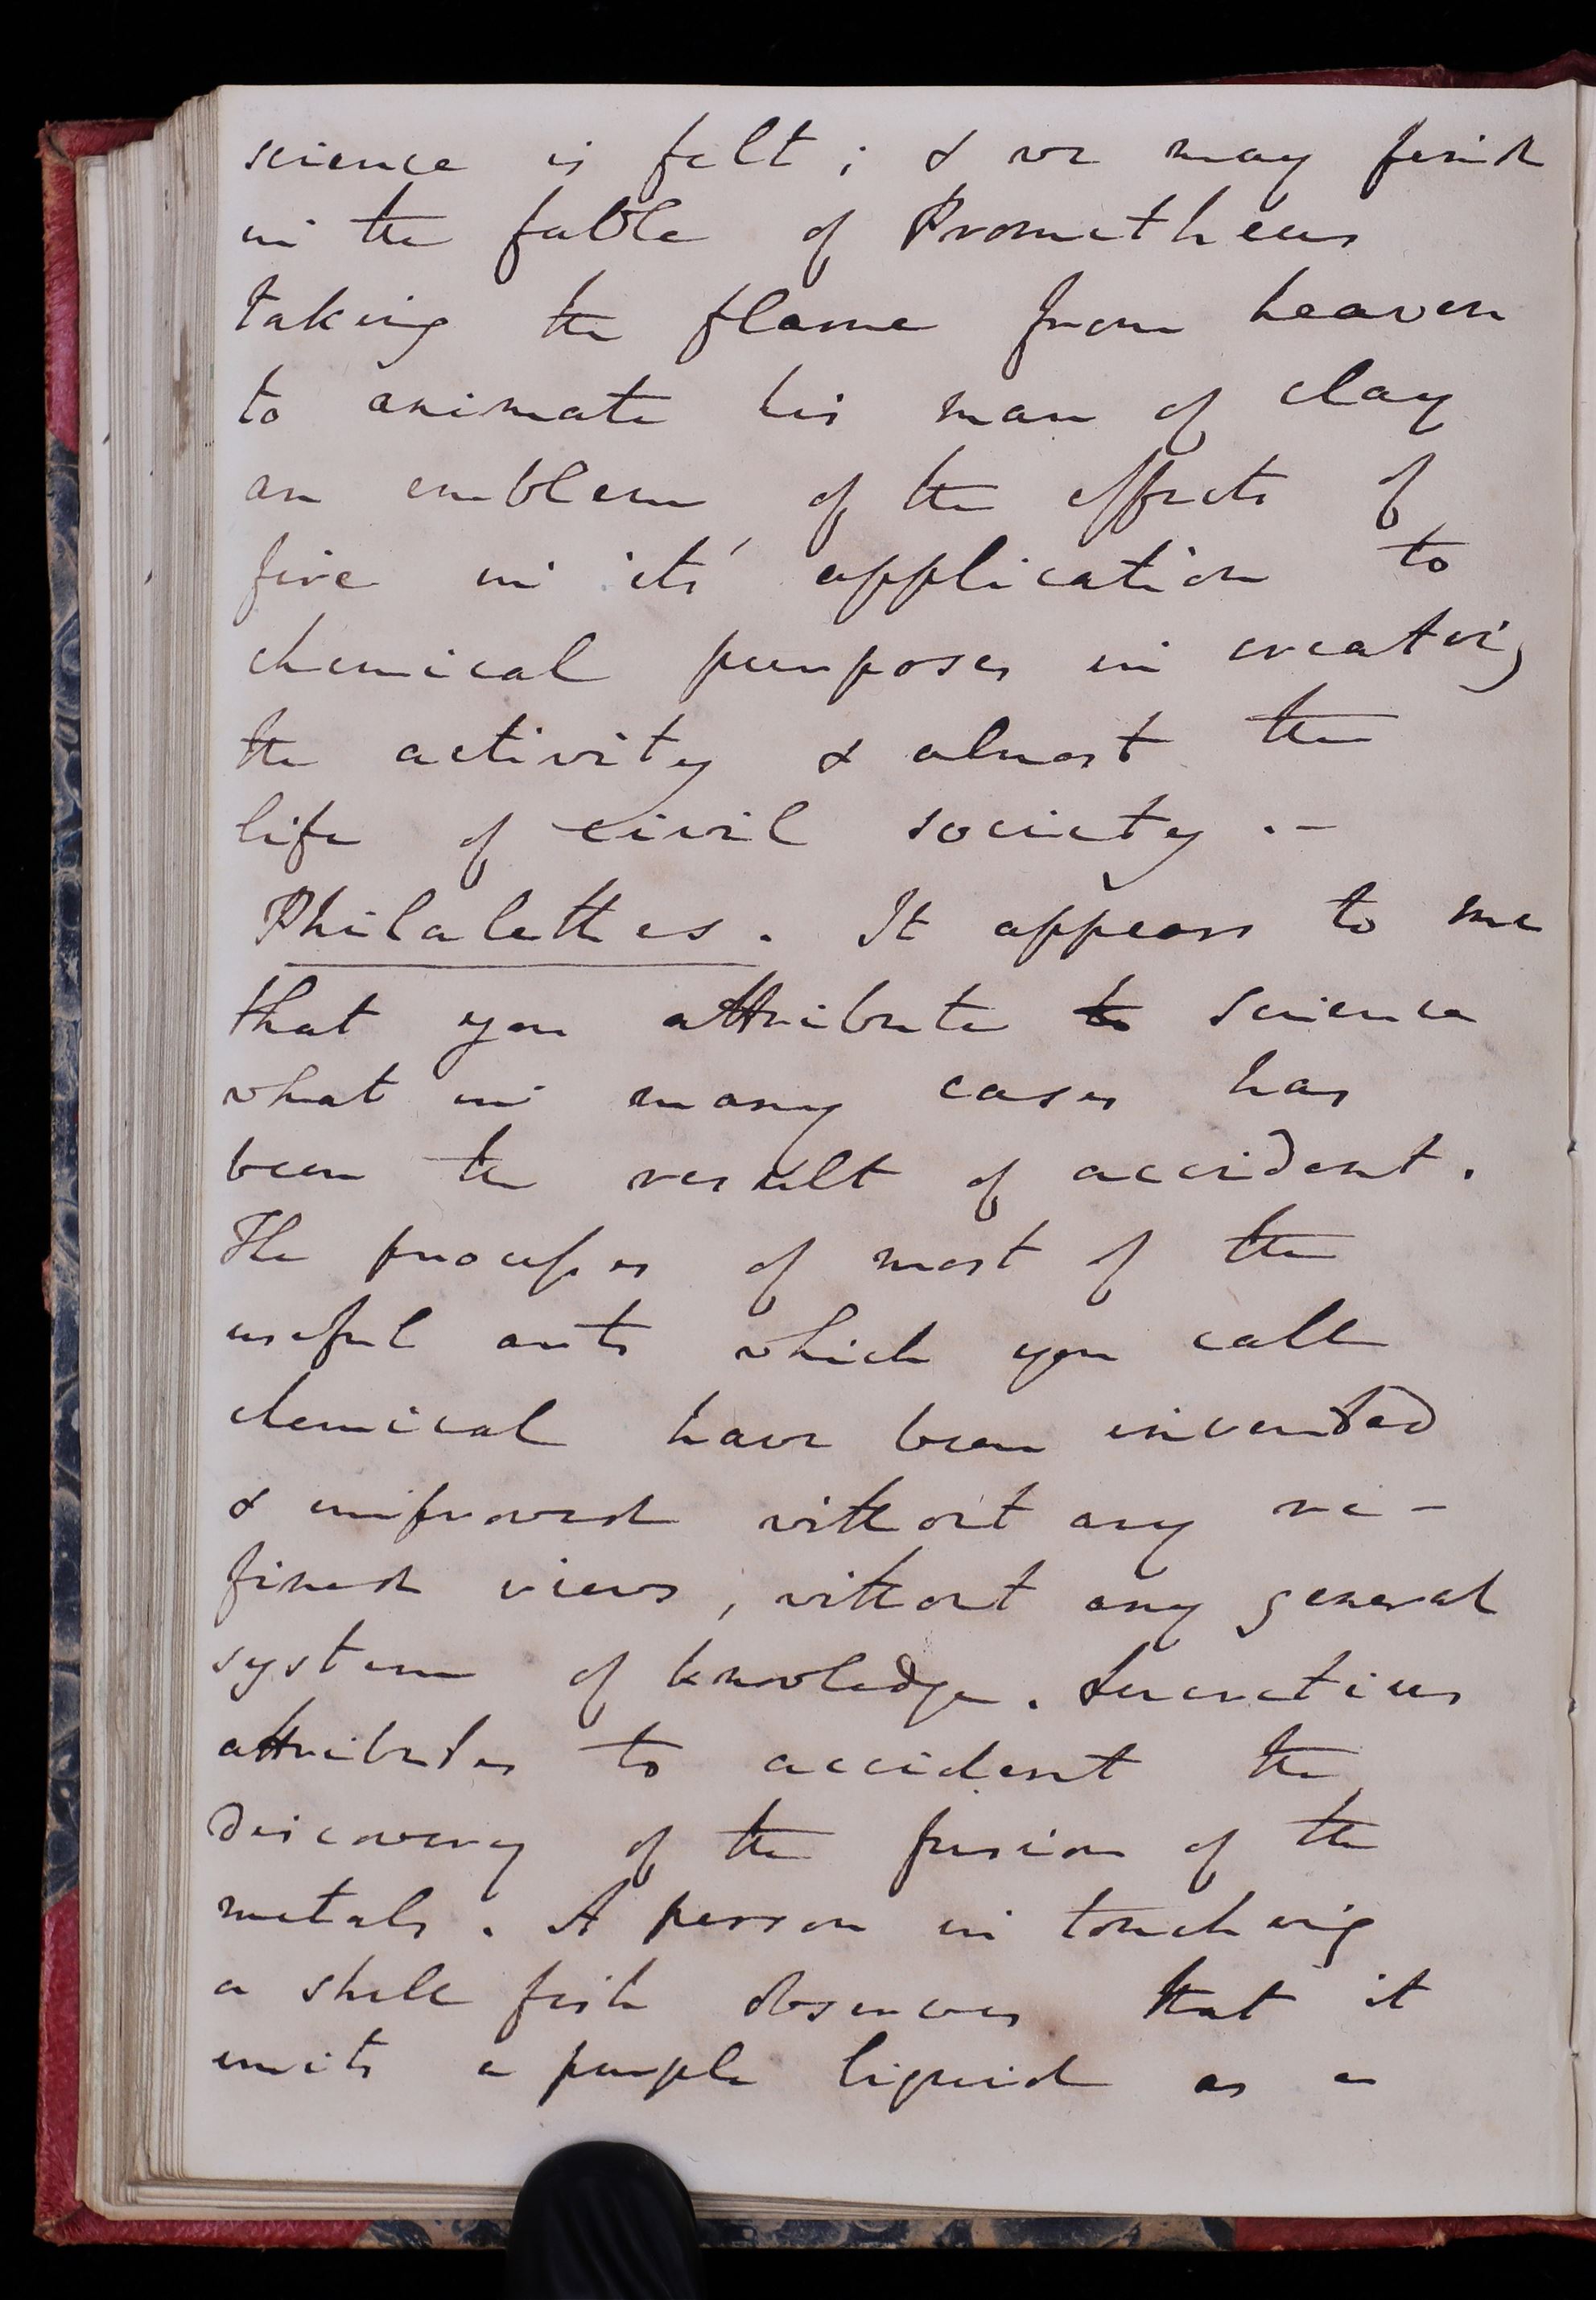 science is felt; & we may find
in the fable of Prometheus
taking the flame from heaven
to animate his man of clay
an emblem of the effects of
fire in its' application to
chemical purposes in creating
the activity & almost the
life of civil society.-
Philalethes. It appears to me
that you attribute to science
what in many cases has
been the result of accident.
The processes of most of the
useful arts which you call
chemical have been invented
& improved without any re-
fined views, without any general
system of knowledge. Lucretius
attributes to accident the
discovery of the fusion of the
metals. A person in touching
a shell fish observes that it
emits a purple liquid as a